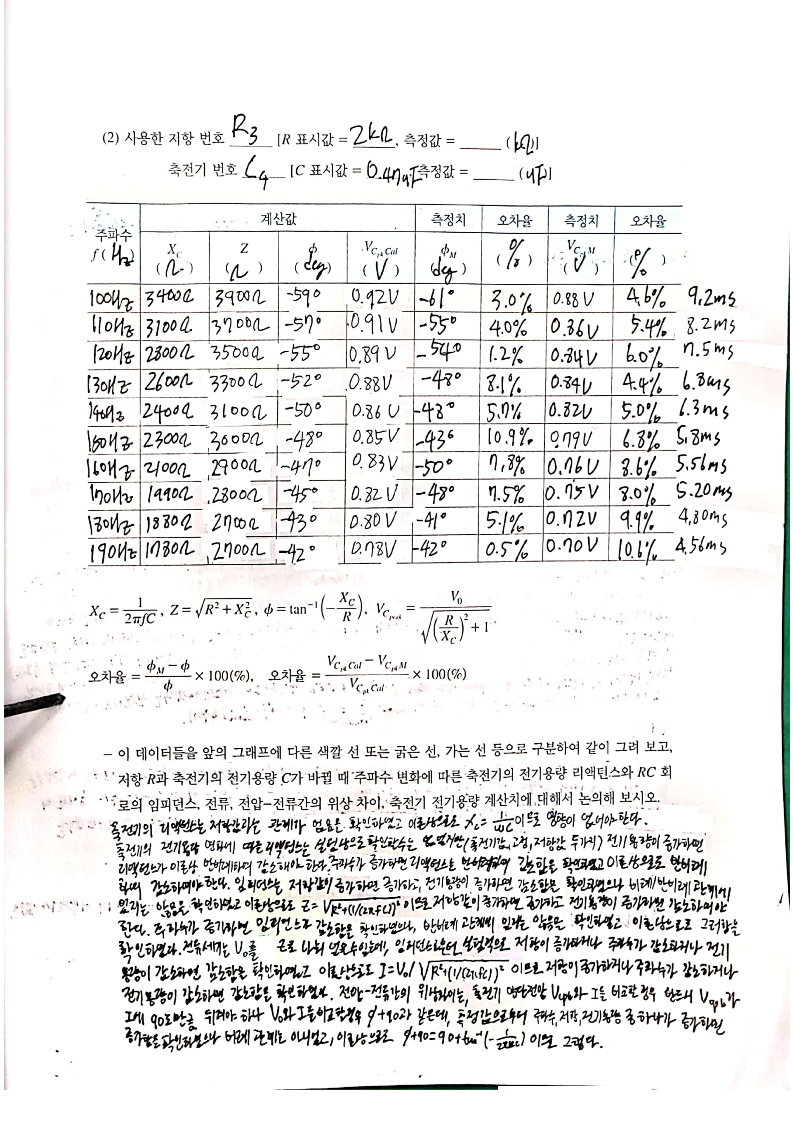 (2) 사용한 저항 번호 R3 [R 표시값 = 2kΩ, 측정값 = (kΩ)]
축전기 번호 C4 [C 표시값 = 0.47uF 측정값 = (uF)]
주파수 계산값 측정치 오차율 측정치 오차율
f (Hz) X_C (Ω) Z (Ω) ϕ (deg) V_CpkCal (V) ϕ_M (deg) % (%) V_CpkM (V) (%)
100Hz 3400Ω 3900Ω -59° 0.92V -61° 3.0% 0.88V 4.6% 9.2ms
110Hz 3100Ω 3700Ω -57° 0.91V -55° 4.0% 0.86V 5.4% 8.2ms
120Hz 2800Ω 3500Ω -55° 0.89V -54° 1.2% 0.84V 6.0% 7.5ms
130Hz 2600Ω 3300Ω -52° 0.88V -48° 8.1% 0.84V 4.4% 6.8ms
140Hz 2400Ω 3100Ω -50° 0.86V -48° 5.7% 0.82V 5.0% 6.3ms
150Hz 2300Ω 3000Ω -48° 0.85V -43° 10.9% 0.79V 6.8% 5.8ms
160Hz 2100Ω 2900Ω -47° 0.83V -50° 7.8% 0.76V 8.6% 5.56ms
170Hz 1990Ω 2800Ω -45° 0.82V -48° 7.5% 0.75V 8.0% 5.20ms
180Hz 1880Ω 2700Ω -43° 0.80V -41° 5.1% 0.72V 9.9% 4.80ms
190Hz 1780Ω 2700Ω -42° 0.78V -42° 0.5% 0.70V 10.6% 4.56ms
X_C = 1/(2πfC), Z = √(R²+X_C²), ϕ = tan⁻¹(−X_C/R), V_Cpeak = V_0/√((R/X_C)²+1)
오차율 = (ϕ_M − ϕ)/ϕ × 100(%), 오차율 = (V_CpkCal − V_CpkM)/V_CpkCal × 100(%)
– 이 데이터들을 앞의 그래프에 다른 색깔 선 또는 굵은 선, 가는 선 등으로 구분하여 같이 그려 보고,
저항 R과 축전기의 전기용량 C가 바뀔 때 주파수 변화에 따른 축전기의 전기용량 리액턴스와 RC 회
로의 임피던스, 전류, 전압-전류간의 위상 차이, 축전기 전기용량 계산치에 대해서 논의해 보시오.
축전기의 리액턴스는 저항값과는 관계가 없음을 확인하였고 이론상으로 X_C=1/ωC이므로 영향이 없어야 한다.
축전기의 전기용량 변화에 따른 리액턴스는 실험상으로 확인할수는 없었지만(축전기값 고정, 저항값 두가지) 전기용량이 증가하면
리액턴스가 이론상 반비례하여 감소해야 한다. 주파수가 증가하면 리액턴스는 반비례하여 감소함을 확인하였고 이론상으로 반비례
하여 감소하여야 한다. 임피던스는 저항값이 증가하면 증가하고, 전기용량이 증가하면 감소함은 확인하였으나 비례/반비례 관계에
있지는 않음을 확인하였고 이론상으로 Z=√(R²+(1/(2πfC))²) 이므로 저항값이 증가하면 증가하고 전기용량이 증가하면 감소하여야
한다. 주파수가 증가하면 임피던스가 감소함을 확인하였으나, 반비례 관계에 있지는 않음은 확인하였고 이론상으로 그러함을
확인하였다. 전류세기는 V_0를 로 나눈 임피던스로부터 실험적으로 저항이 증가하거나 주파수가 감소하거나 전기
용량이 감소하면 감소함을 확인하였고 이론상으로 I=V_0/√(R²+(1/(2πfC))² 이므로 저항이 증가하거나 주파수가 감소하거나
전기용량이 감소하면 감소함을 확인하였다. 전압-전류간의 위상차이는, 축전기 양단전압 와 I를 비교할 경우 반드시
I에 90도만큼 뒤져야 하나 V_0와 I를 비교할경우 ϕ+90과 같은데, 측정값으로부터 주파수, 저항, 전기용량 중 하나가 증가하면
증가함을 확인하였으나 비례 관계는 아니었고, 이론상으로 ϕ+90=90+tan⁻¹ 이므로 그렇다.